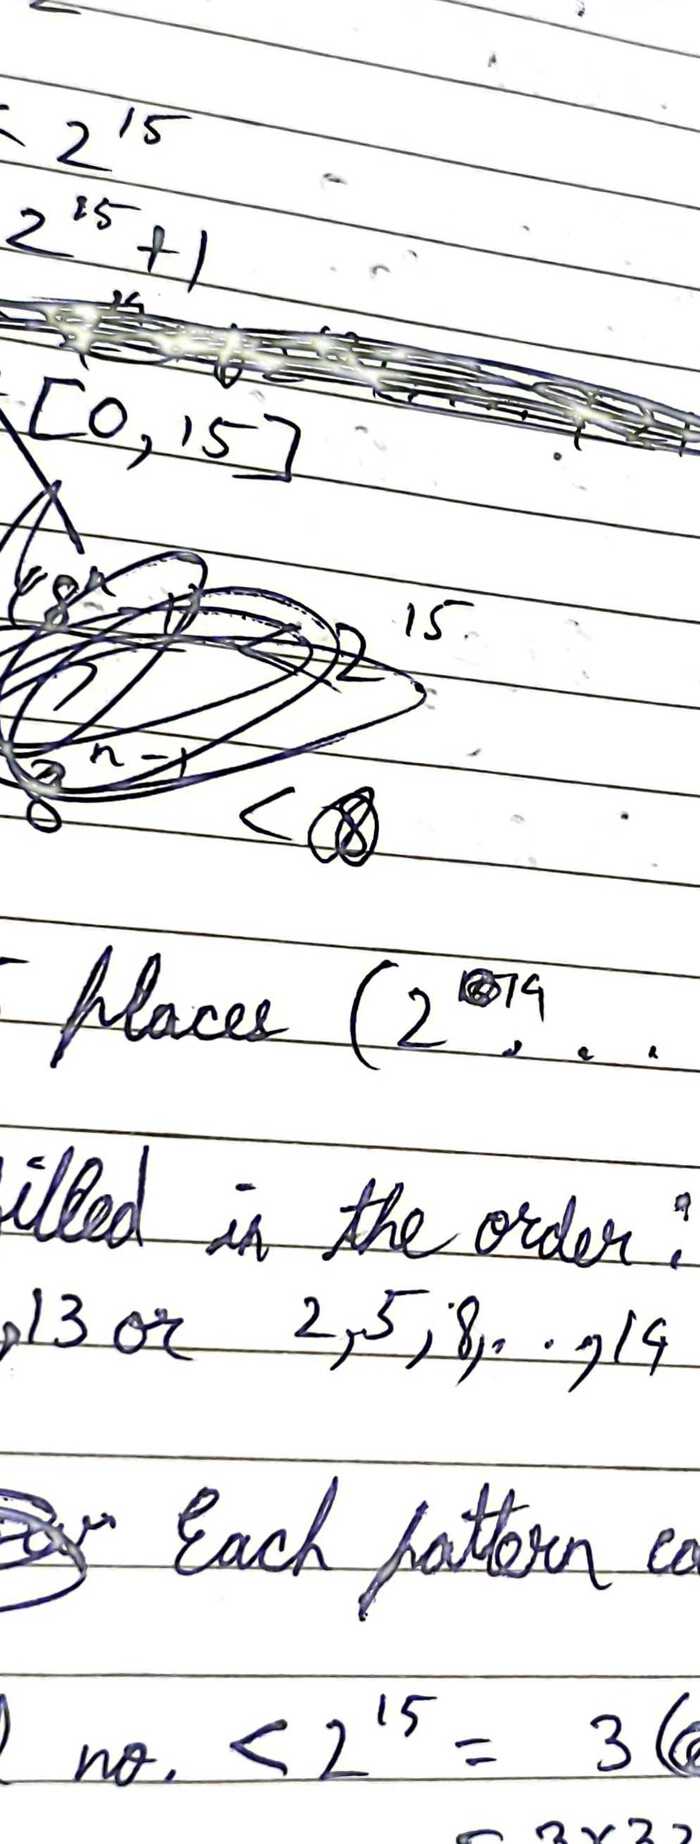 < 2^15
2^15 + 1
[0, 15]
8
2^15
n-1
< 8
places (2^14, . . .
illed in the order:
,13 or 2,5,8,. . ,14
Each pattern co
no. < 2^15 = 3(
= 3×32